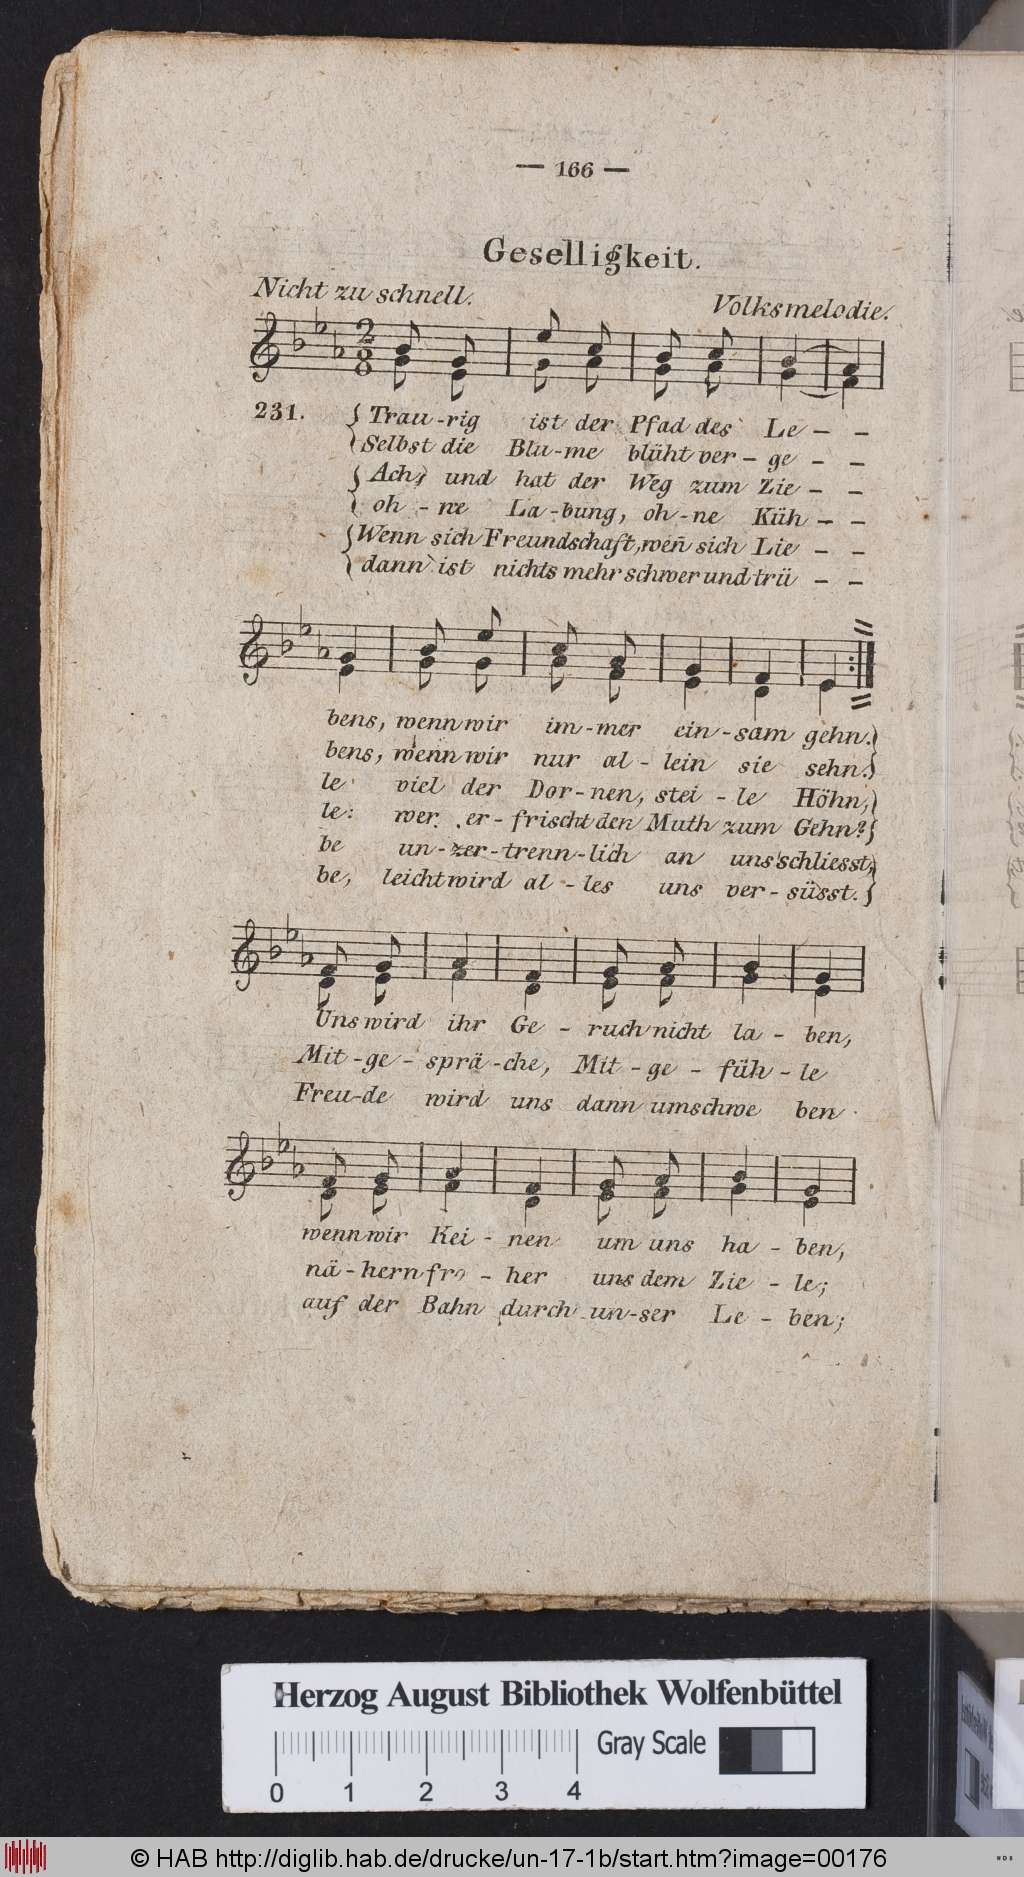 — 166 —
Geselligkeit.
Nicht zu schnell.
Volksmelodie.
2/8
231.
Trau-rig ist der Pfad des Le - -
Selbst die Blu-me blüht ver-ge - -
Ach, und hat der Weg zum Zie - -
oh-ne La-bung, oh-ne Küh - -
Wenn sich Freundschaft, weñ sich Lie - -
dann ist nichts mehr schwer und trü - -
bens, wenn wir im-mer ein-sam gehn.
bens, wenn wir nur al-lein sie sehn.
le viel der Dor-nen, stei-le Höhn,
le: wer er-frischt den Muth zum Gehn?
be un-zer-trenn-lich an uns schliesst,
be, leicht wird al-les uns ver-süsst.
Uns wird ihr Ge-ruch nicht la-ben,
Mit-ge-sprä-che, Mit-ge-füh-le
Freu-de wird uns dann umschwe ben
wenn wir Kei-nen um uns ha-ben,
nä-hern fro-her uns dem Zie-le;
auf der Bahn durch un-ser Le-ben;
Herzog August Bibliothek Wolfenbüttel
Gray Scale
0 1 2 3 4
© HAB http://diglib.hab.de/drucke/un-17-1b/start.htm?image=00176